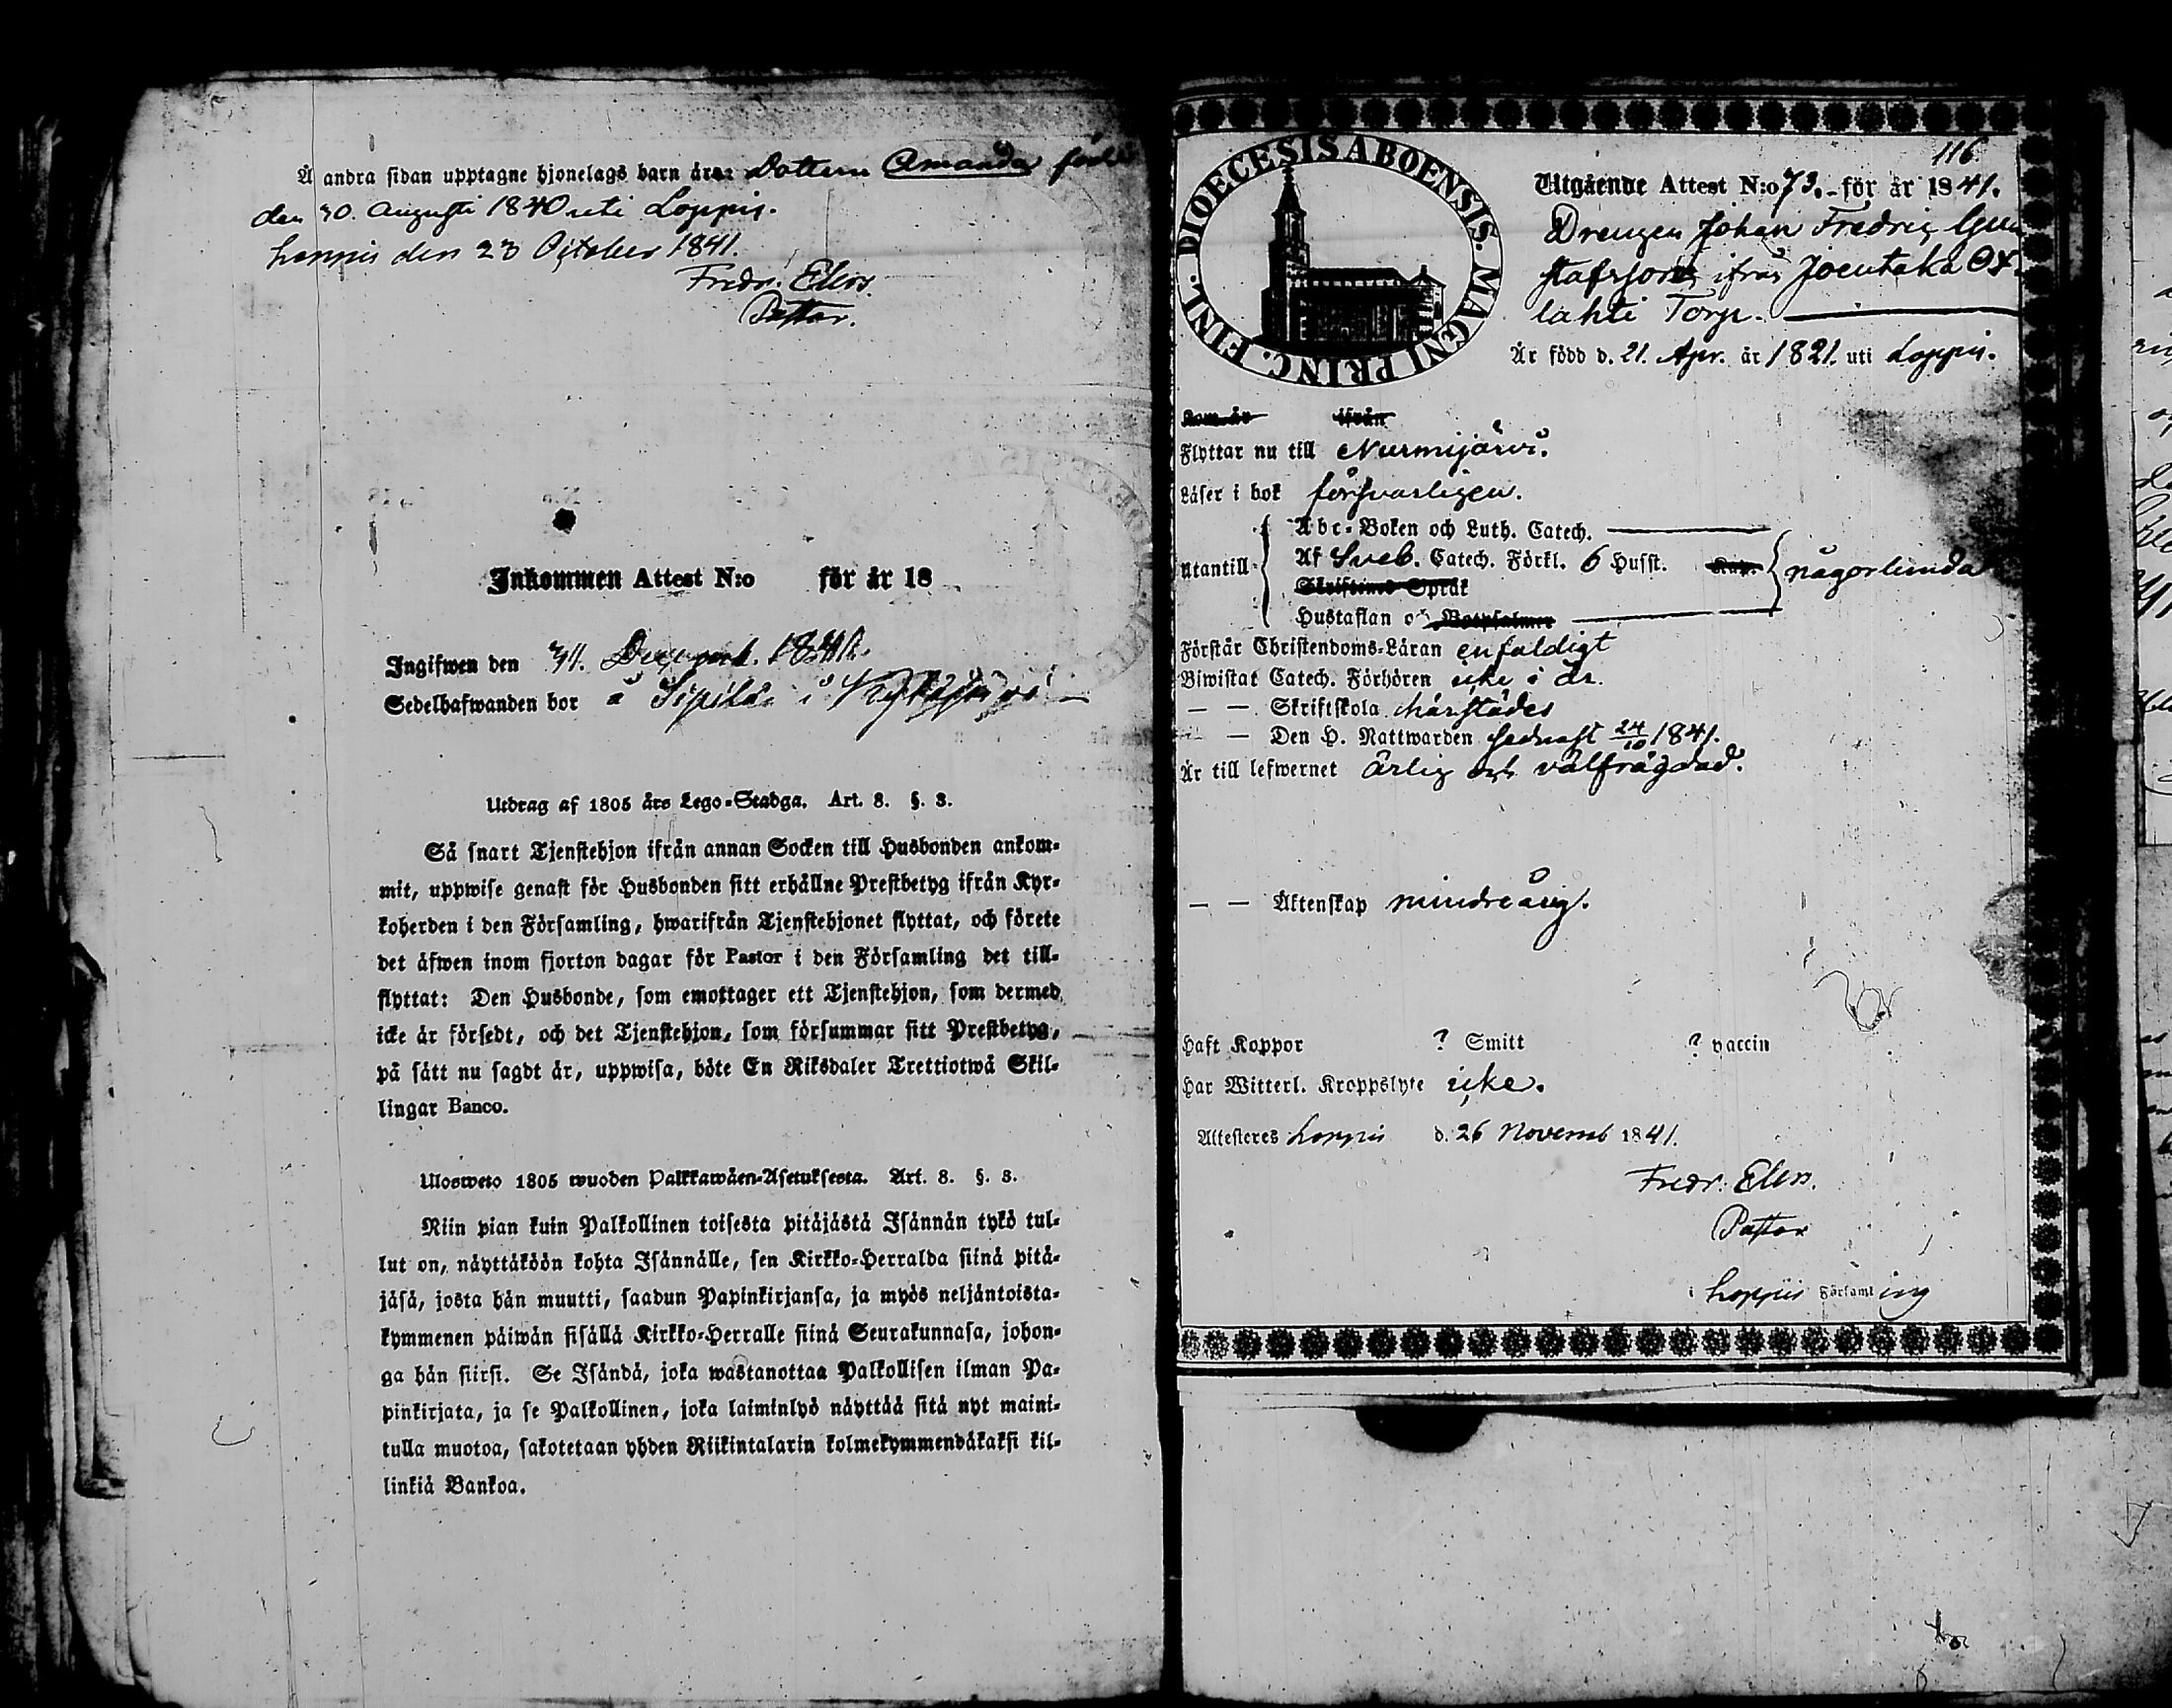 Å andra sidan upptagne hjonelags barn äro: Dottern Amanda född
den 30. Augusti 1840 uti Loppis.
Loppis den 23 October 1841.
Fredr. Elers.
Pastor.
Inkommen Attest N:o för år 18
Ingifwen den 31. 1841.
Sedelhafwanden bor å Sipilä i
Utdrag af 1805 års Lego-Stadga. Art. 8. §. 3.
Så snart Tjenstehjon ifrån annan Socken till Husbonden ankom-
mit, uppwise genast för Husbonden sitt erhållne Prestbetyg ifrån Kyr-
koherden i den Församling, hwarifrån Tjenstehjonet flyttat, och förete
det äfwen inom fjorton dagar för Pastor i den Församling det till-
flyttat: Den Husbonde, som emottager ett Tjenstehjon, som dermed
icke är försedt, och det Tjenstehjon, som försummar sitt Prestbetyg,
på sätt nu sagdt är, uppwisa, böte En Riksdaler Trettiotwå Skil-
lingar Banco.
Ulosweto 1805 wuoden Palkkawäen-Asetuksesta. Art. 8. §. 3.
Niin pian kuin Palkollinen toisesta pitäjästä Isännän tykö tul-
lut on, näyttäköön kohta Isännälle, sen Kirkko-Herralda siinä pitä-
jäsä, josta hän muutti, saadun Papinkirjansa, ja myös neljäntoista-
kymmenen päiwän sisällä Kirkko-Herralle siinä Seurakunnasa, johon-
ga hän siirsi. Se Isändä, joka wastanottaa Palkollisen ilman Pa-
pinkirjata, ja se Palkollinen, joka laiminlyö näyttää sitä nyt maini-
tulla muotoa, sakotetaan yhden Riikintalarin kolmekymmendäkaksi kil-
linkiä Bankoa.
116
DIOECESIS ABOENSIS. MAGNI PRINC. FINL.
Utgående Attest N:o 73. för år 1841.
Drengen Johan Fredric Gus
tafsson ifrån Joentaka Ox
lahti Torp.
Är född d. 21. Apr. år 1821. uti Loppis.
Kom år ifrån
Flyttar nu till Nurmijärvi.
Läser i bok försvarligen.
Abc-Boken och Luth. Catech.
Utantill Af Sveb. Catech. Förkl. 6 Husst. Kap. någorlunda
Skriftenes Språk
Hustaflan och Botpsalmer
Förstår Christendoms-Läran enfaldigt
Biwistat Catech. Förhören icke i år.
— — Skriftskola härstädes
— — Den H. Nattwarden sednast 24/10 1841.
Är till lefwernet ärlig och välfrägdad.
— — Äktenskap mindreårig.
Haft Koppor ? Smitt ? vaccin
Har Witterl. Kroppslyte icke.
Attesteres Loppis d. 26 Novemb 1841.
Fredr. Elers.
Pastor
i Loppis Församling